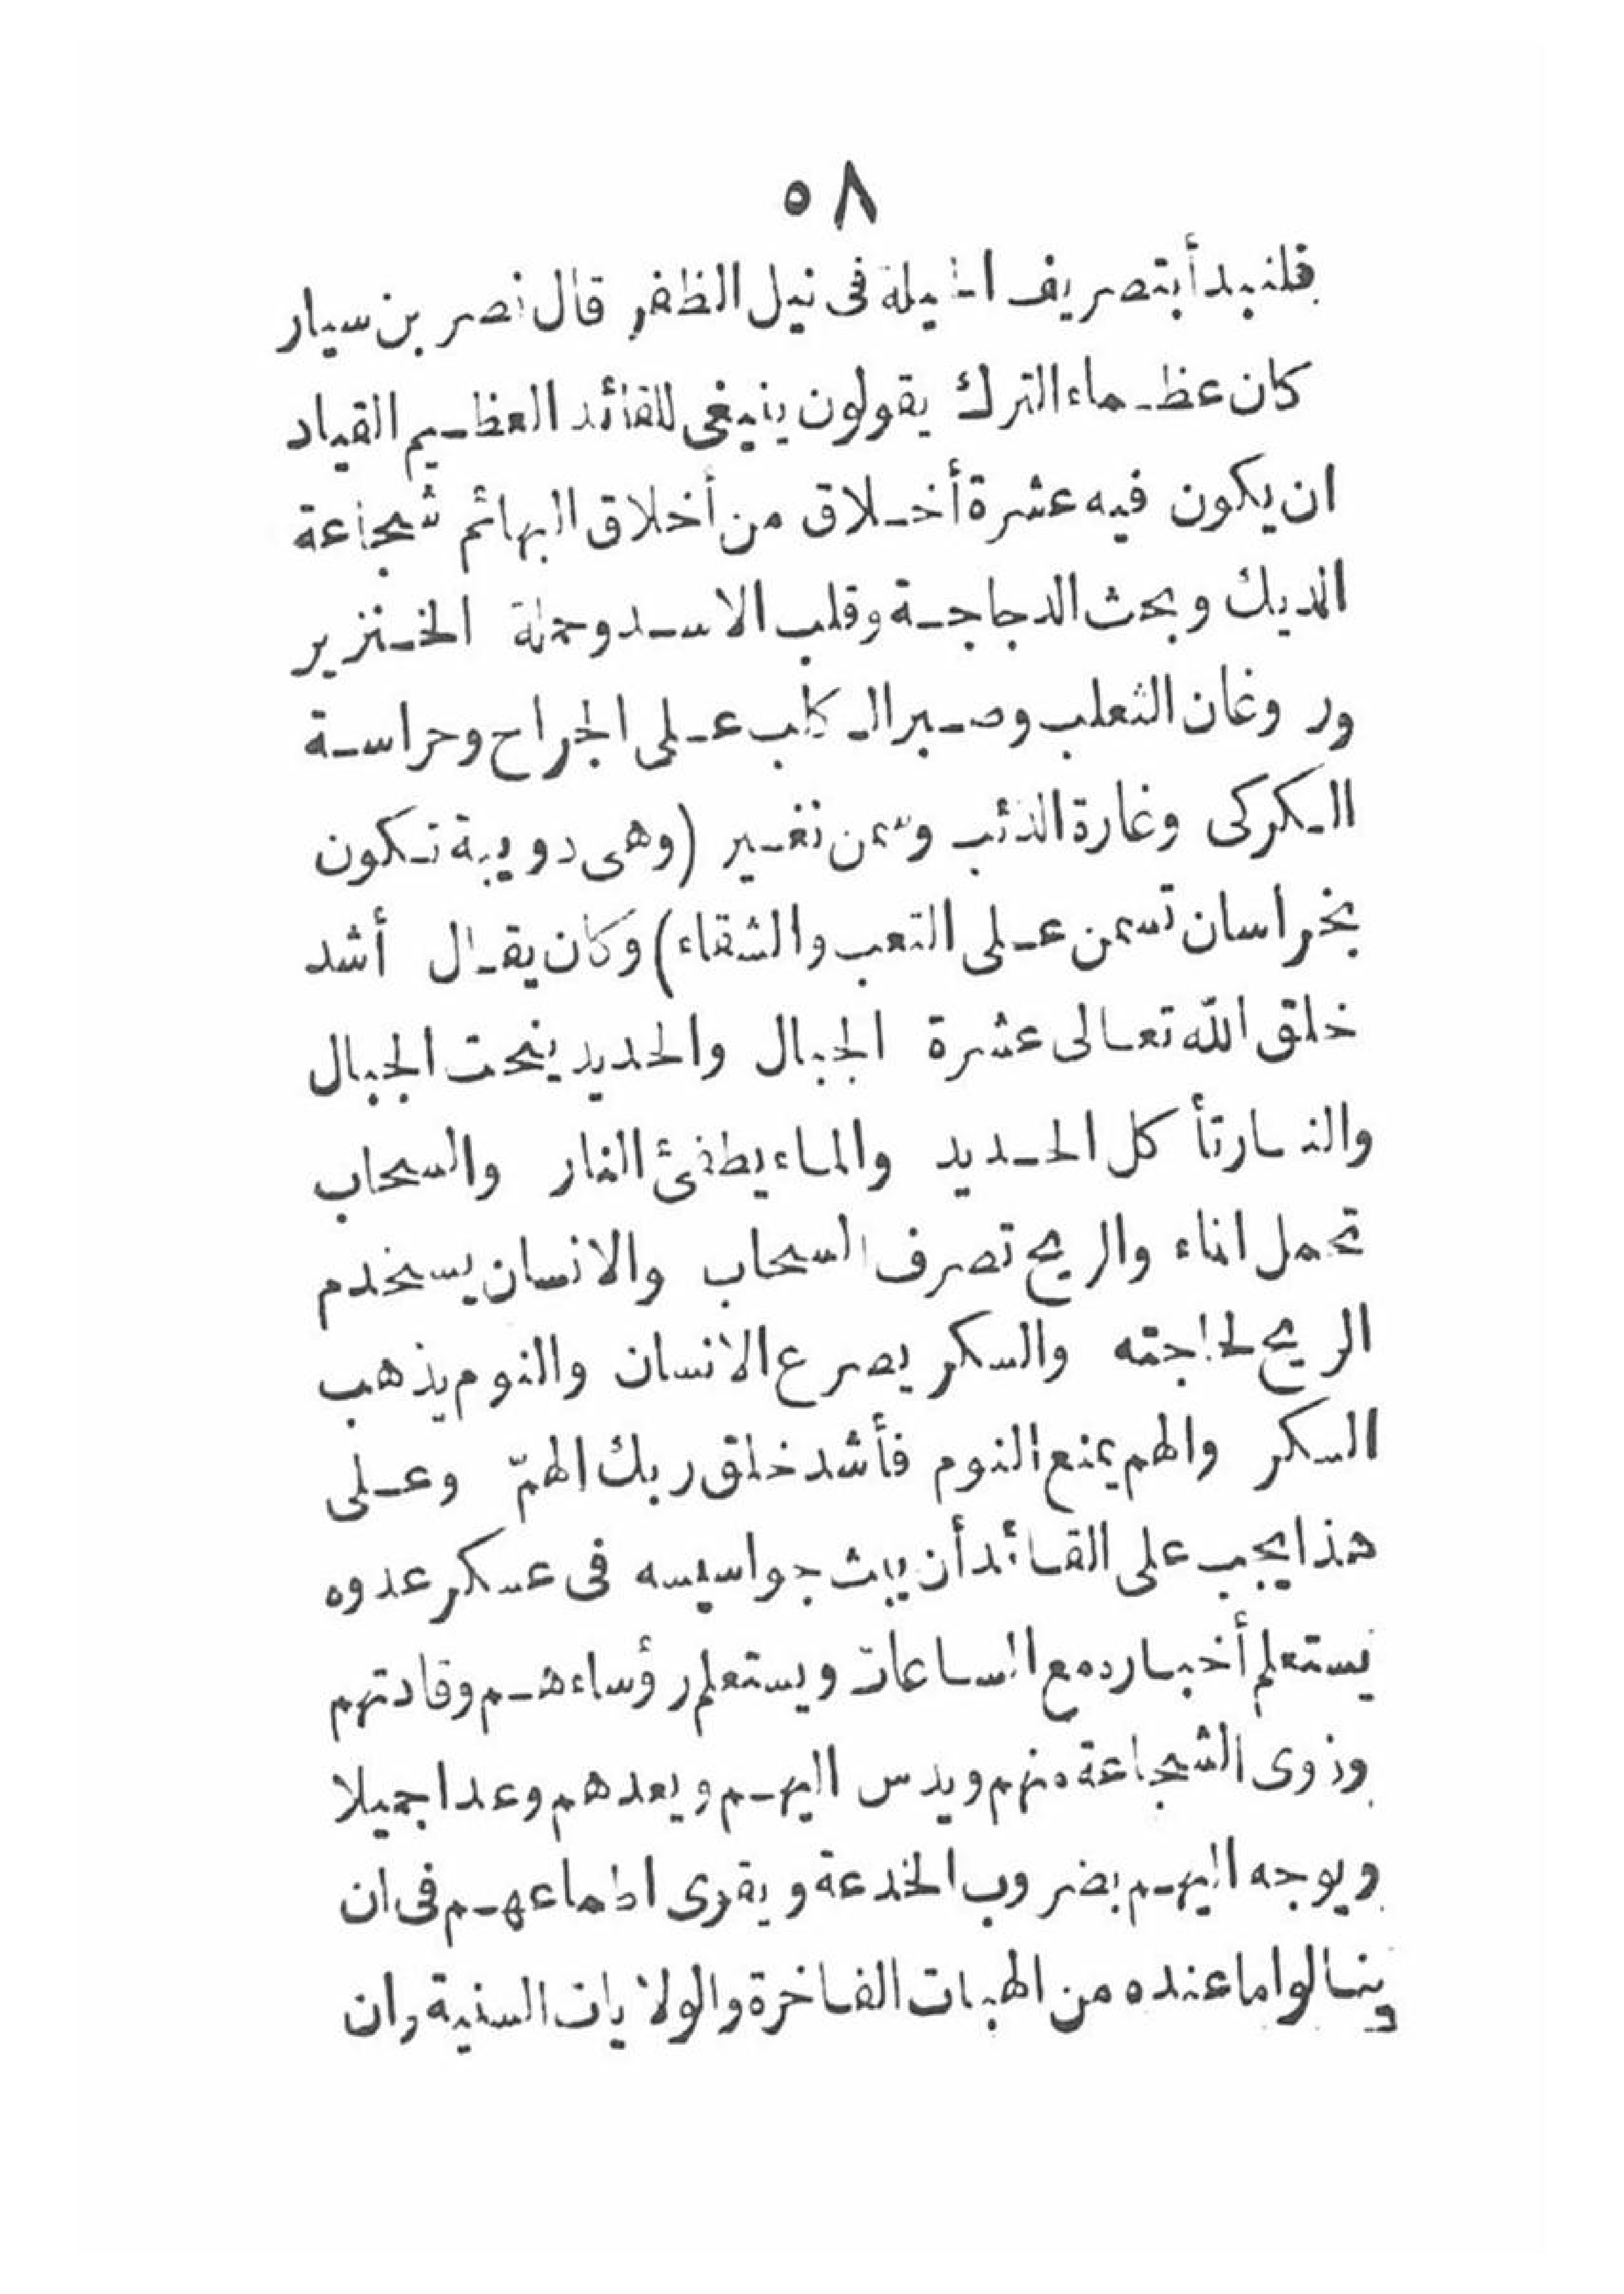 ٥٨
فلنبدأ بتصريف الحيلة فى نيل الظفر قال نصر بن سيار
كان عظماء الترك يقولون ينبغى للقائد العظيم القياد
ان يكون فيه عشرة أخلاق من أخلاق البهائم شجاعة
الديك وبحث الدجاجة وقلب الاسد وحملة الخنزير
وروغان الثعلب وصبر الكلب على الجراح وحراسة
الكركى وغارة الذئب وسمن نغير (وهى دويبة تكون
بخراسان تسمن على التعب والشقاء) وكان يقال أشد
خلق الله تعالى عشرة الجبال والحديد ينحت الجبال
والنار تأكل الحديد والماء يطفئ النار والسحاب
تحمل الماء والريح تصرف السحاب والانسان يستخدم
الريح لحاجته والسكر يصرع الانسان والنوم يذهب
السكر والهم يمنع النوم فأشد خلق ربك الهمّ وعلى
هذا يجب على القائد أن يبث جواسيسه فى عسكر عدوه
يستعلم أخباره مع الساعات ويستعلم رؤساءهم وقادتهم
وذوى الشجاعة منهم ويدس اليهم ويعدهم وعدا جميلا
ويوجه اليهم بضروب الخدعة ويقوى اطماعهم فى ان
ينالوا ما عنده من الهبات الفاخرة والولايات السنية وان